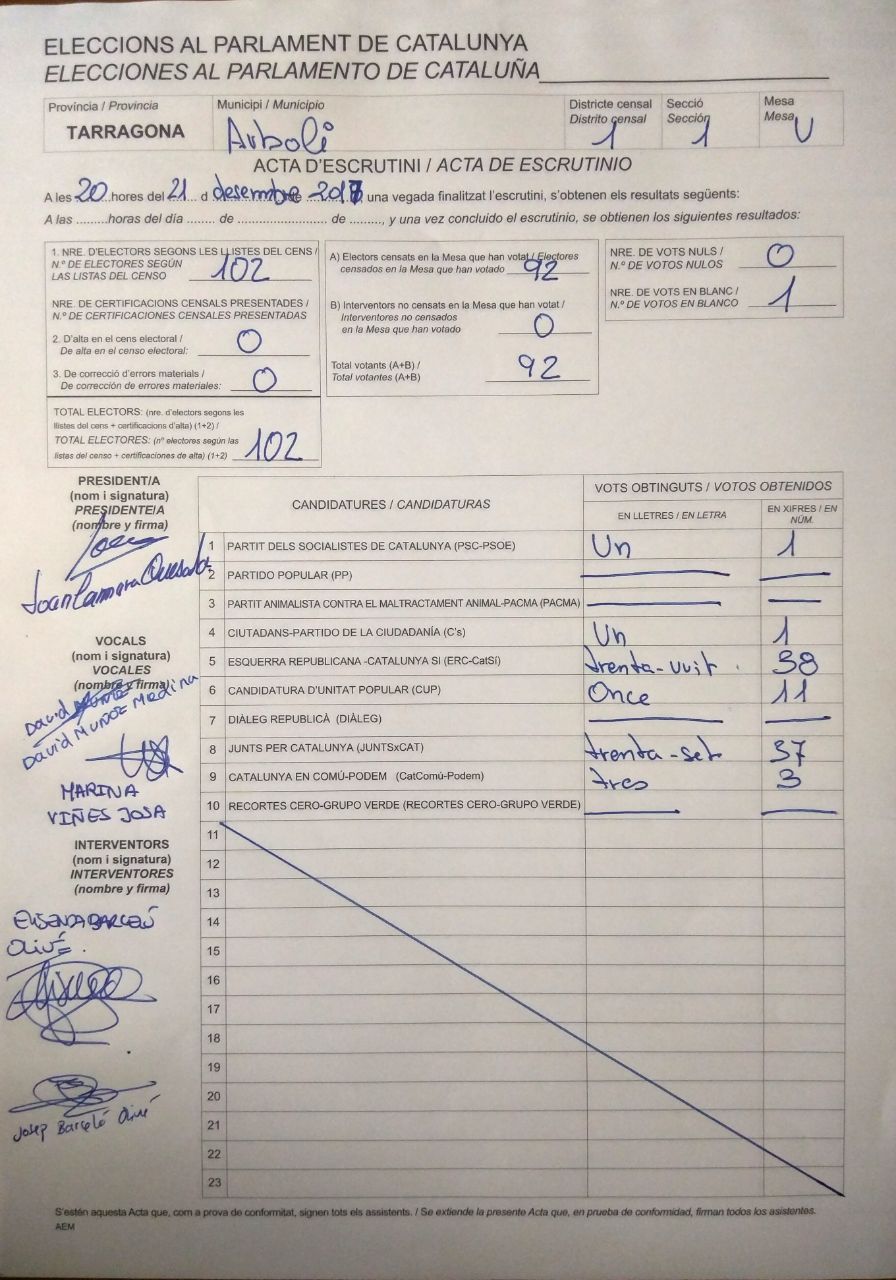 ELECCIONS AL PARLAMENT DE CATALUNYA
ELECCIONES AL PARLAMENTO DE CATALUÑA
Província / Provincia
TARRAGONA
Municipi / Municipio
Arbolí
Districte censal
Distrito censal
1
Secció
Sección
1
Mesa
Mesa
U
ACTA D'ESCRUTINI / ACTA DE ESCRUTINIO
A les 20 hores del 21 d desembre de 2017 una vegada finalitzat l'escrutini, s'obtenen els resultats següents:
A las .........horas del día ........ de ......................... de ........., y una vez concluido el escrutinio, se obtienen los siguientes resultados:
1. NRE. D'ELECTORS SEGONS LES LLISTES DEL CENS /
N.º DE ELECTORES SEGÚN
LAS LISTAS DEL CENSO 102
NRE. DE CERTIFICACIONS CENSALS PRESENTADES /
N.º DE CERTIFICACIONES CENSALES PRESENTADAS
2. D'alta en el cens electoral /
De alta en el censo electoral: 0
3. De correcció d'errors materials /
De corrección de errores materiales: 0
TOTAL ELECTORS: (nre. d'electors segons les
llistes del cens + certificacions d'alta) (1+2) /
TOTAL ELECTORES: (nº electores según las
listas del censo + certificaciones de alta) (1+2) 102
A) Electors censats en la Mesa que han votat / Electores
censados en la Mesa que han votado 92
B) Interventors no censats en la Mesa que han votat /
Interventores no censados
en la Mesa que han votado 0
Total votants (A+B) /
Total votantes (A+B) 92
NRE. DE VOTS NULS /
N.º DE VOTOS NULOS 0
NRE. DE VOTS EN BLANC /
N.º DE VOTOS EN BLANCO 1
PRESIDENT/A
(nom i signatura)
PRESIDENTE/A
(nombre y firma)
VOCALS
(nom i signatura)
VOCALES
(nombre y firma)
David Muñoz Medina
MARINA
VIÑES JOSA
INTERVENTORS
(nom i signatura)
INTERVENTORES
(nombre y firma)
ELISENDA BARCELÓ
OLIVÉ
Josep Barceló Olivé
CANDIDATURES / CANDIDATURAS
VOTS OBTINGUTS / VOTOS OBTENIDOS
EN LLETRES / EN LETRA
EN XIFRES / EN
NÚM.
1 PARTIT DELS SOCIALISTES DE CATALUNYA (PSC-PSOE) Un 1
2 PARTIDO POPULAR (PP)
3 PARTIT ANIMALISTA CONTRA EL MALTRACTAMENT ANIMAL-PACMA (PACMA)
4 CIUTADANS-PARTIDO DE LA CIUDADANÍA (C's) Un 1
5 ESQUERRA REPUBLICANA -CATALUNYA SI (ERC-CatSí) trenta-vuit. 38
6 CANDIDATURA D'UNITAT POPULAR (CUP) Once 11
7 DIÀLEG REPUBLICÀ (DIÀLEG)
8 JUNTS PER CATALUNYA (JUNTSxCAT) trenta-set 37
9 CATALUNYA EN COMÚ-PODEM (CatComú-Podem) tres 3
10 RECORTES CERO-GRUPO VERDE (RECORTES CERO-GRUPO VERDE)
11
12
13
14
15
16
17
18
19
20
21
22
23
S'estén aquesta Acta que, com a prova de conformitat, signen tots els assistents. / Se extiende la presente Acta que, en prueba de conformidad, firman todos los asistentes.
AEM